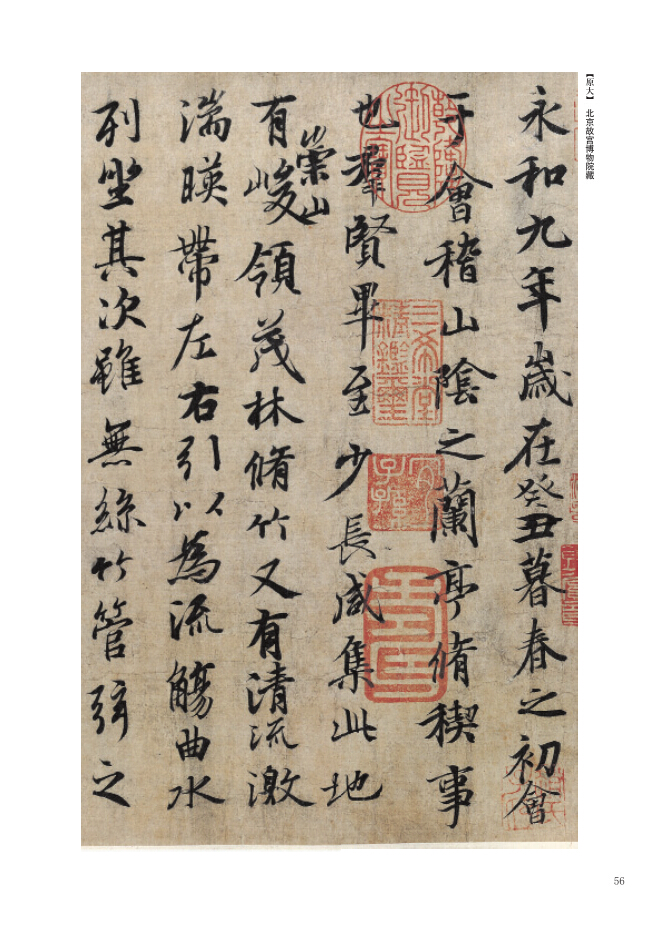 【原大】 北京故宮博物院藏
永和九年歲在癸丑暮春之初會
于會稽山陰之蘭亭脩稧事
也群賢畢至少長咸集此地
有崇山峻領茂林脩竹又有清流激
湍暎帶左右引以為流觴曲水
列坐其次雖無絲竹管弦之
三希堂精鑑璽
宜子孫
56